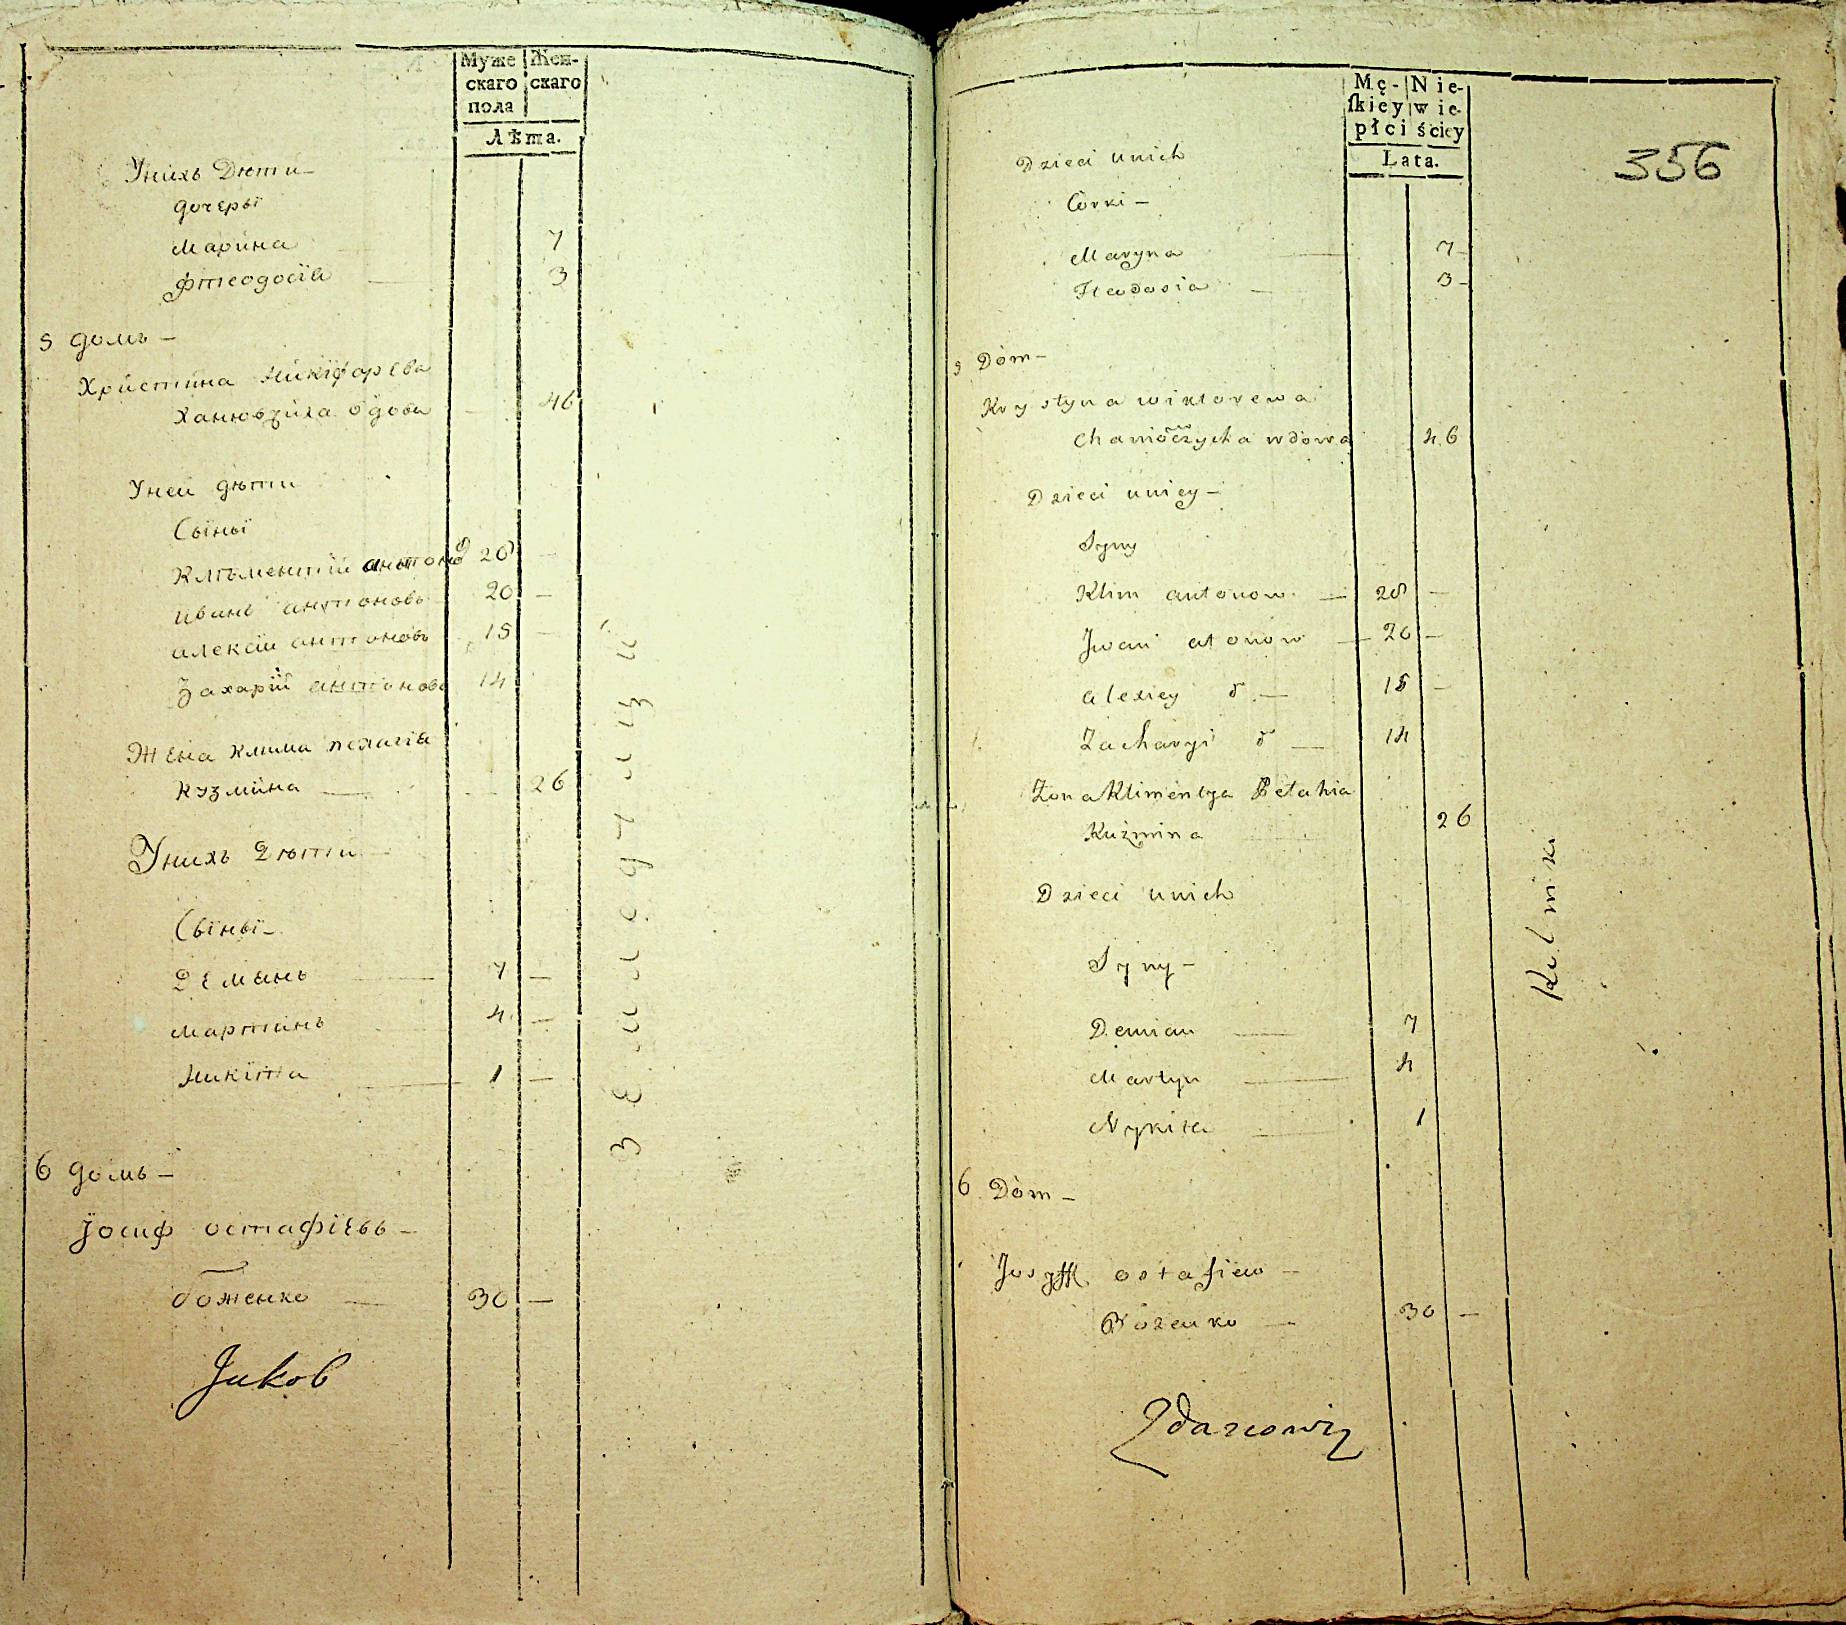 Муже
скаго
пола
Жен-
скаго
Лѣта.
Унихъ Дѣти –
дочерьї
Марина 7
Фтеодосїа 3
5 домъ –
Христина Никіфарева
Ханювзиха вдова 46
Уней дѣти
Сыньї
Клѣментїй антоновъ 28 –
иванъ антоновъ 20 –
алексѣй антоновъ 18 –
Захарїй антоновъ 14
Жена клима пелагїа
Кузмина — 26
Унихъ Дѣти –
Сыньї –
Демянъ — 7 –
Мартинъ 4 –
Никіта — 1 –
6 домъ –
Иосиф остафіевъ –
боженко — 30 –
Jakob
Mę-
ſkiey
płci
Nie-
wie-
ściey
Lata.
356
Dzieci unich
Còrki –
Maryna — 7 –
Fteodosia — 3 –
5 Dòm –
Krystyna wiktorewa
Chanioczycha wdowa 46
Dzieci uniey –
Syny
Klim antonow — 28 –
Jwan atonow — 20 –
alexiey d — 18 –
Zacharyi d — 14
Żona Klimentya Pelahia
Kuźmina 26
Dzieci unich
Syny –
Demian — 7
Martyn — 4
Nykita — 1
6 Dòm –
Jozyff ostafiew –
Bożenko — 30 –
Zdanowicz